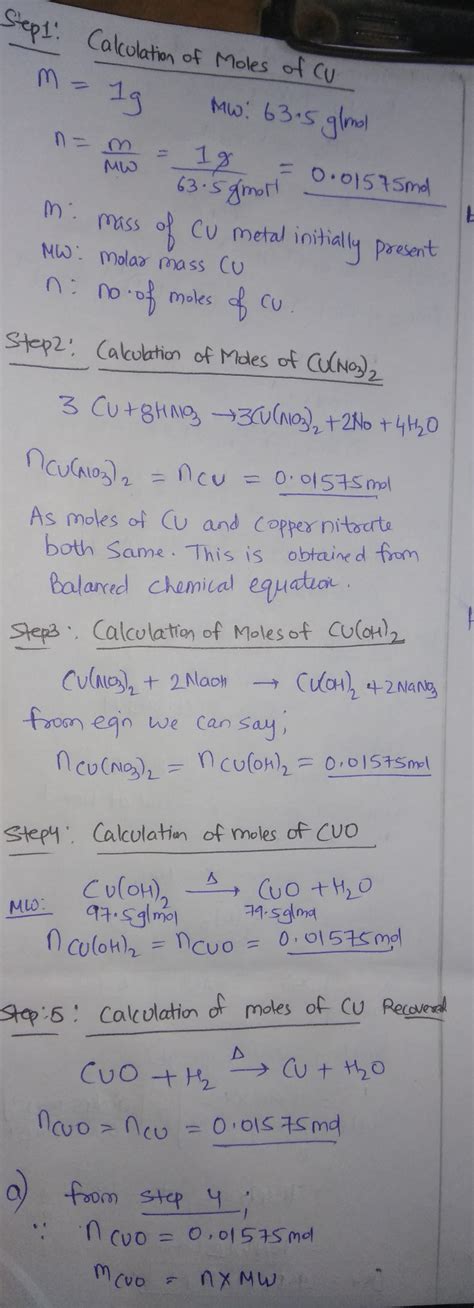 Step1: Calculation of Moles of Cu
m = 1g MW: 63.5 g/mol
n = m/MW = 1g/63.5 g/mol = 0.01575mol
m: mass of Cu metal initially present
MW: molar mass Cu
n: no.of moles of Cu.
Step2: Calculation of Moles of Cu(NO3)2
3 Cu + 8HNO3 → 3Cu(NO3)2 + 2NO + 4H2O
nCu(NO3)2 = nCu = 0.01575mol
As moles of Cu and Copper nitrate
both Same. This is obtained from
Balanced chemical equation.
Step3: Calculation of Moles of Cu(OH)2
Cu(NO3)2 + 2NaOH → Cu(OH)2 + 2NaNO3
from eqn we can say;
nCu(NO3)2 = nCu(OH)2 = 0.01575mol
Step4: Calculation of moles of CuO
Cu(OH)2 —Δ→ CuO + H2O
MW: 97.5g/mol 79.5g/mol
nCu(OH)2 = nCuO = 0.01575mol
Step:5: Calculation of moles of Cu Recovered
CuO + H2 —Δ→ Cu + H2O
nCuO = nCu = 0.01575mol
a) from Step 4;
∵ nCuO = 0.01575mol
mCuO = n x MW